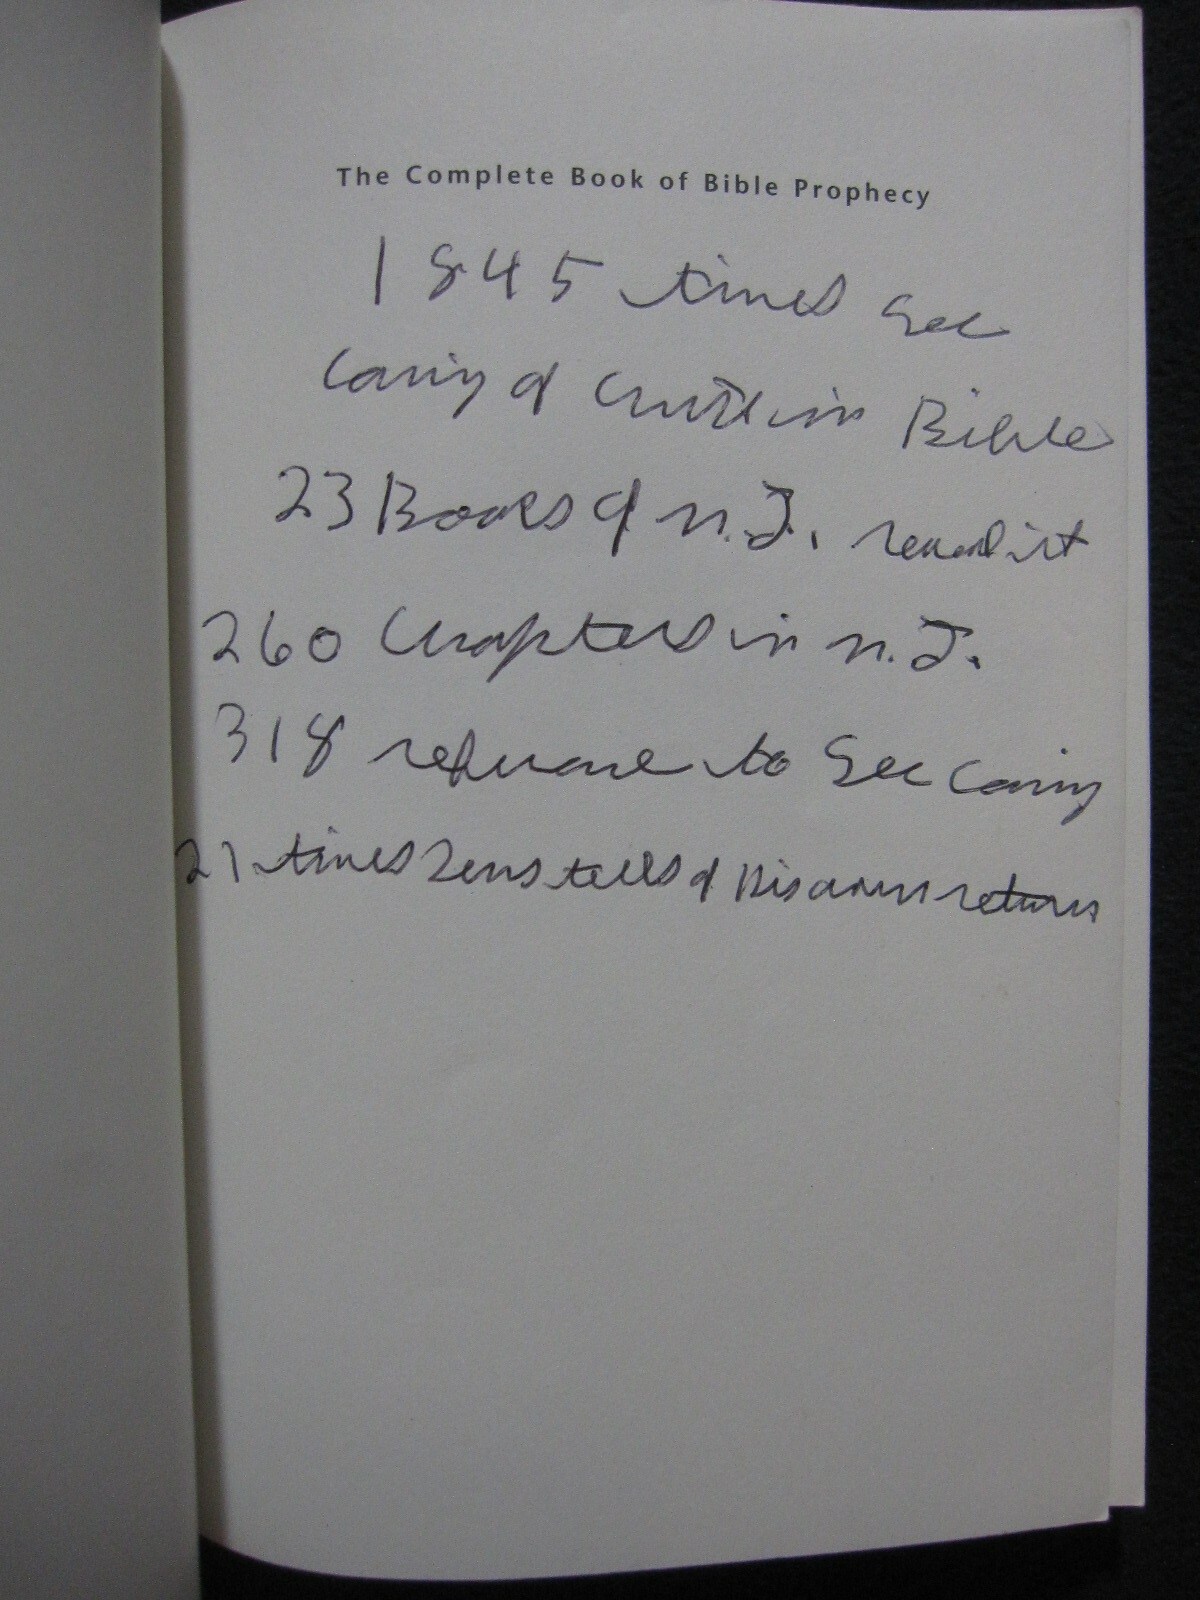 The Complete Book of Bible Prophecy
1845 times Sec
Coming of Christ in Bible
23 Books of N.T.
260 Chapters in N.T.
318 reference to Sec Coming
21 times Jesus tells of His own return